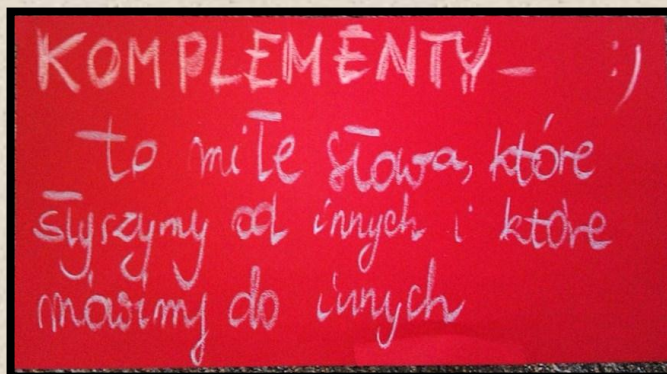 KOMPLEMENTY- :)
to miłe słowa, które
słyszymy od innych i które
mówimy do innych